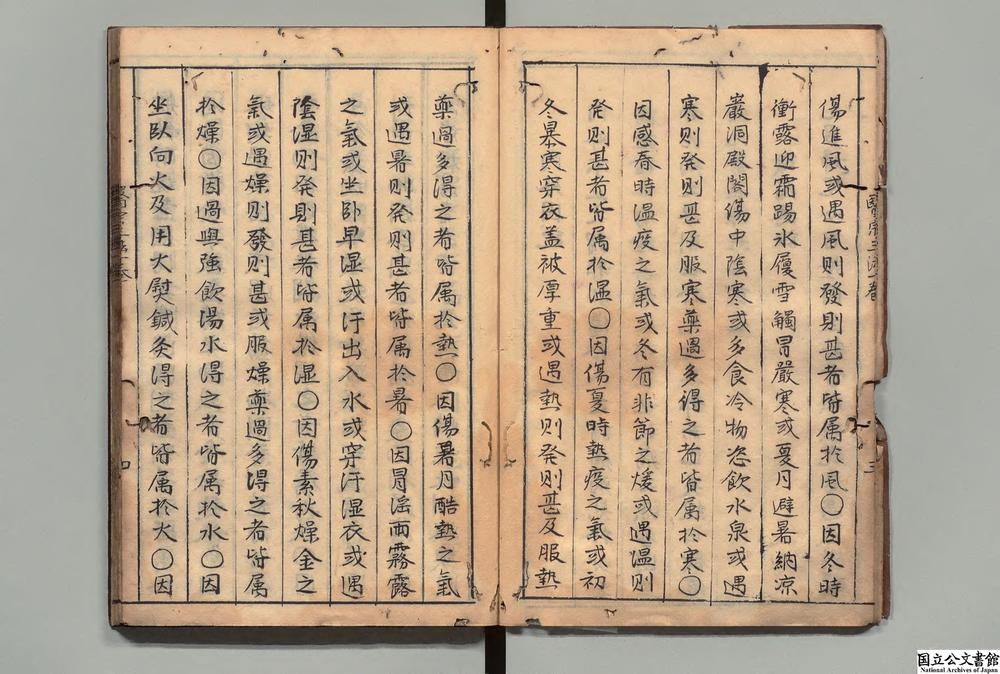 傷進風或遇風則發則甚者皆属於風○因冬時
衝露迎霜踢氷履雪觸冒嚴寒或夏月避暑納凉
巖洞殿閣傷中陰寒或多食冷物恣飲水泉或遇
寒則発則甚及服寒藥過多得之者皆属於寒○
因感春時温疫之氣或冬有非節之煖或遇温則
発則甚者皆属於温○因傷夏時熱疫之氣或初
冬暴寒穿衣盖被厚重或遇熱則発則甚及服熱
藥過多得之者皆属於熱○因傷暑月酷熱之氣
或遇暑則発則甚者皆属於暑○因冒淫雨霧露
之氣或坐卧早湿或汗出入水或穿汗湿衣或遇
陰湿則発則甚者皆属於湿○因傷素秋燥金之
氣或遇燥則發則甚或服燥藥過多得之者皆属
於燥○因過與強飲湯水得之者皆属於水○因
坐臥向火及用大熨鍼灸得之者皆属於火○因
三
四
国立公文書館
National Archives of Japan